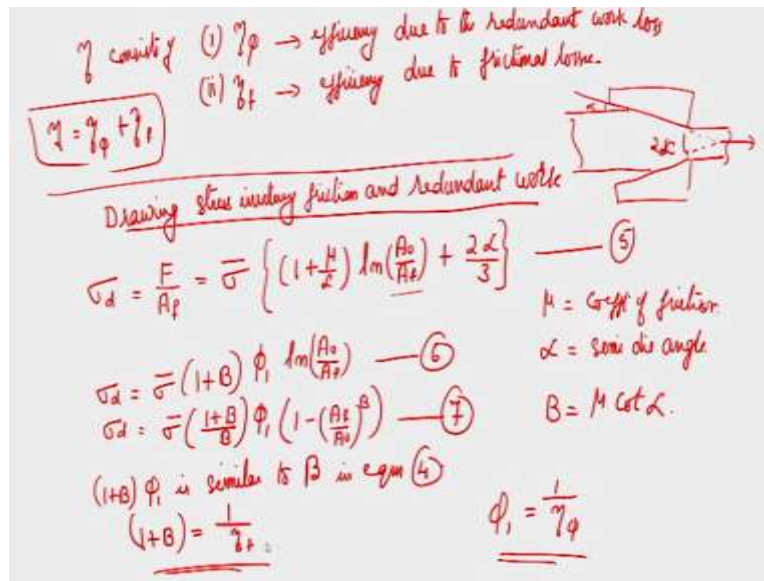 η consists of (i) ηφ → efficiency due to the redundant work loss
(ii) ηf → efficiency due to frictional losses.
η = ηφ + ηf
α
2α
Drawing stress involving friction and redundant work
σd = F/Af = σ̄ { (1 + μ/α) ln(A0/Af) + 2α/3 } — ⑤
μ = coeff of friction
α = semi die angle
σd = σ̄ (1+B) φ1 ln(A0/Af) — ⑥
σd = σ̄ ((1+B)/B) φ1 (1 - (Af/A0)^B) — ⑦
B = μ cot α.
(1+B) φ1 is similar to β in eqn ④
(1+B) = 1/ηf.
φ1 = 1/ηφ